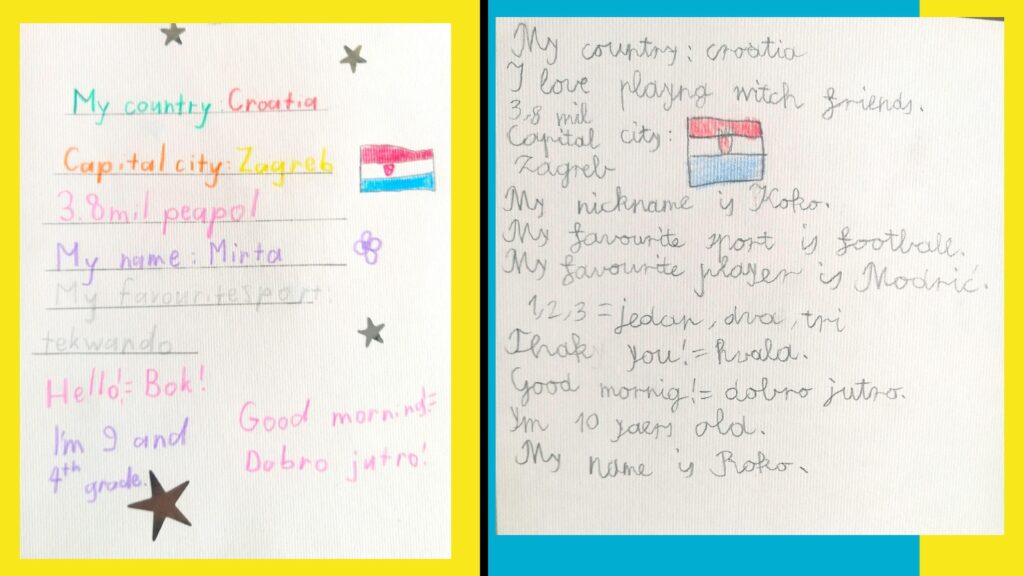 My country: Croatia
Capital city: Zagreb
3.8mil peapol
My name: Mirta
My favouritesport:
tekwando
Hello!= Bok!
I'm 9 and
4th grade.
Good morning!=
Dobro jutro!
My country: croatia
I love playng witch friends.
3,8 mil
Capital city:
Zagreb
My nickname is Koko.
My favourite sport is football.
My favourite player is Modrić.
1,2,3 = jedan, dva, tri
Thak you!= hvala.
Good mornig!= dobro jutro.
I'm 10 yaers old.
My name is Roko.